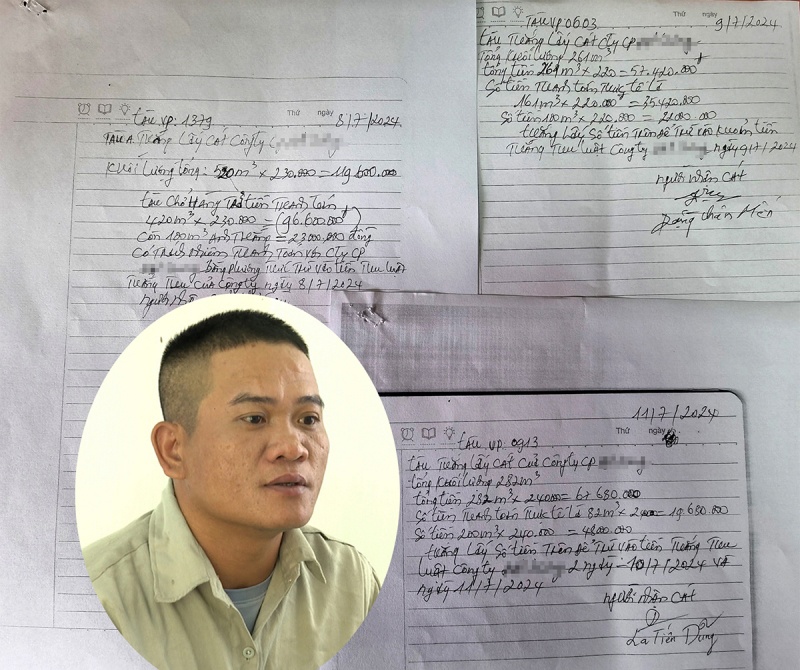 Thứ ngày 8/7/2024
tàu VP: 1379
TÀU A Thắng Lấy CÁT CÔNG Ty CP
KHối Lượng tổng: 520m³ x 230,000 = 119 600.000
tàu CHở Hàng Trả tiền THANH toán
420m³ x 230.000 = (96.600.000đ)
Còn 100m³ ANH THẮNG = 23000.000 đồng
Có TRách Nhiệm THANH Toán với CTy CP
bằng PHương THức THừ Vào tiền
THắng của Công ty ngày 8/7/2024
người
Thứ ngày 9/7/2024
TÀU VP 0603
tàu THắng Lấy CÁT CTy CP
Tổng KHối Lượng 261m³
tổng tiền 261m³ x 220 = 57.420.000đ
Số tiền THANH toán THực tế là
161m³ x 220.000 = 35420.000
Số tiền 100m³ x 220.000 = 22000.000
THắng Lấy Số tiền Trên để THừ Vào KHoản tiền
THắng Công ty ngày 9/7/2024
người nhận CÁT
11/7/2024
Thứ ngày
tàu VP: 0913
tàu THắng Lấy CÁT Của Công ty CP
tổng KHối Lượng 282m³
tổng tiền 282m³ x 240.000 = 67 680.000
Số tiền THANH toán THực tế là 82m³ x = 19 680.000
Số tiền 200m³ x 240.000 = 48000.000
THắng Lấy Số tiền Trên để THừ Vào tiền THắng
Công ty 2 ngày 10/7/2024 VÀ
ngày 11/7/2024
người nhận CÁT
La Tiến Dũng